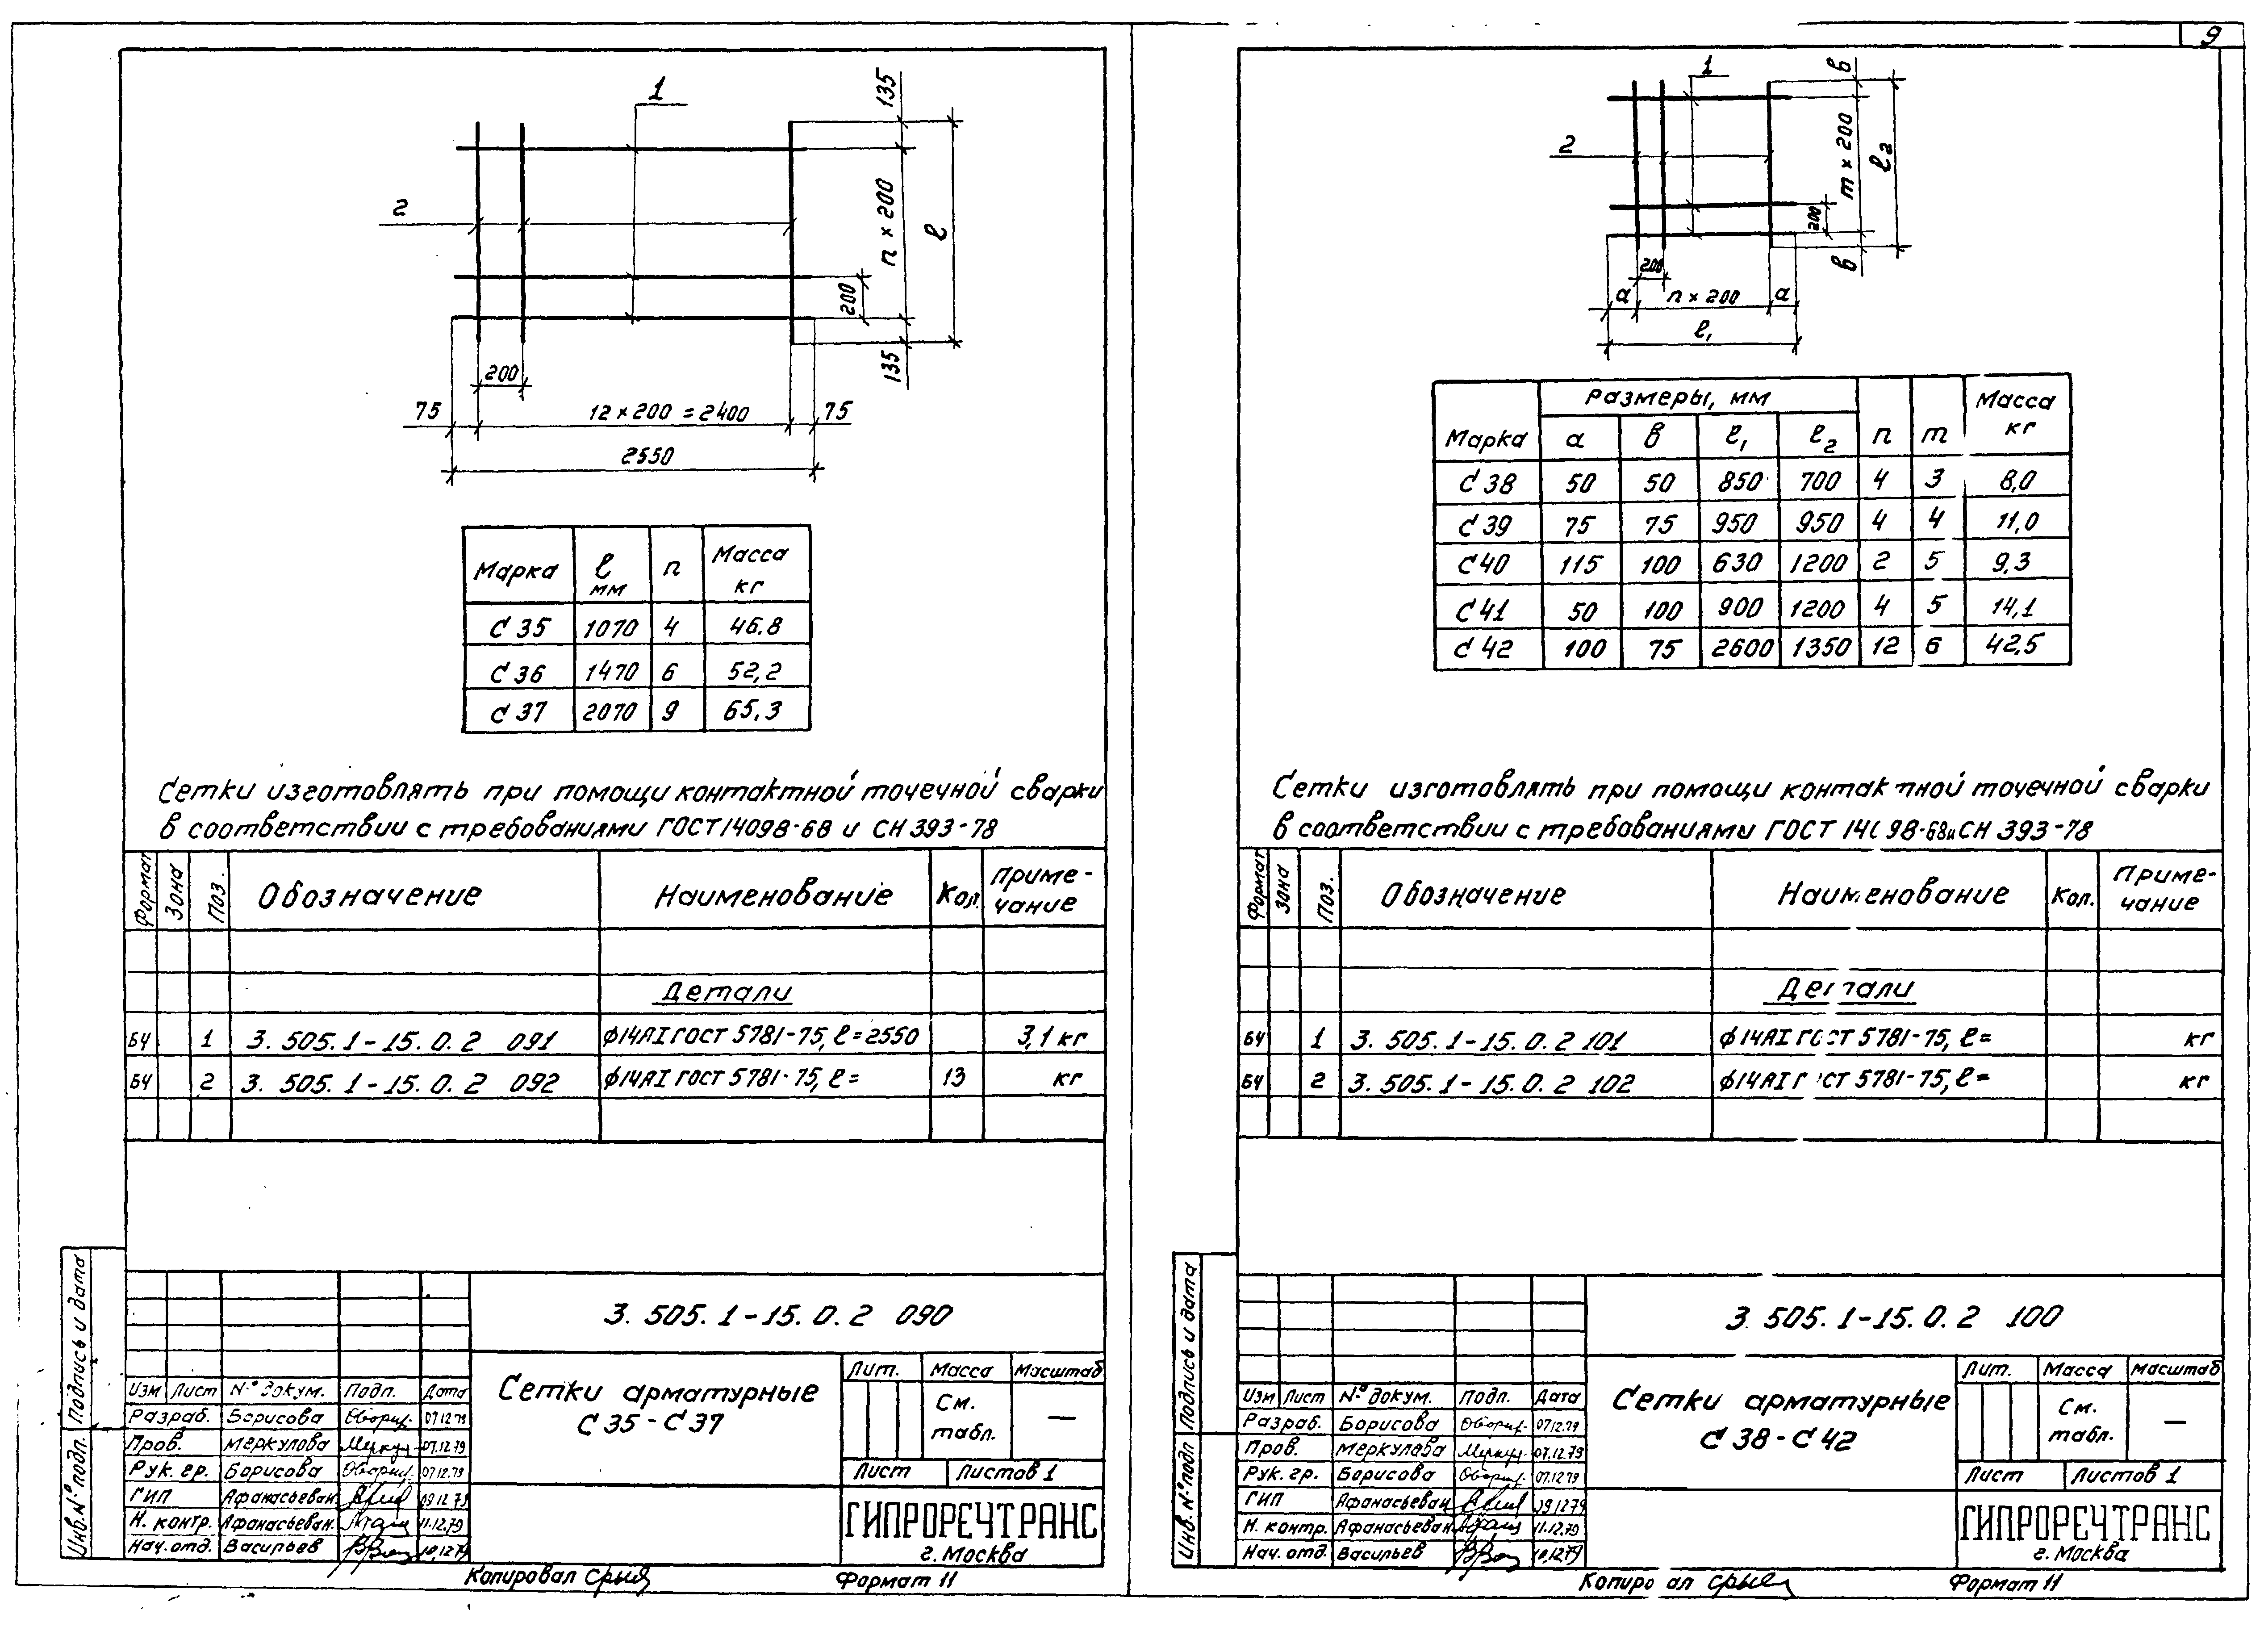 9
1
2
135
n × 200
ℓ
200
135
200
75
12 × 200 = 2400
75
2550
Марка ℓ мм n Масса кг
С 35 1070 4 46.8
С 36 1470 6 52,2
С 37 2070 9 65,3
Сетки изготовлять при помощи контактной точечной сварки
в соответствии с требованиями ГОСТ 14098-68 и СН 393-78
Формат Зона Поз. Обозначение Наименование Кол. Приме-чание
Детали
БЧ 1 3. 505. 1-15. 0. 2 091 ф14АI ГОСТ 5781-75, ℓ=2550 3,1 кг
БЧ 2 3. 505. 1-15. 0. 2 092 ф14АI ГОСТ 5781-75, ℓ= 13 кг
Подпись и дата
Инв. №подл.
3. 505. 1-15. 0. 2 090
Сетки арматурные
С 35 - С 37
Лит. Масса Масштаб
См. табл. —
Лист Листов 1
Изм Лист № докум. Подп. Дата
Разраб. Борисова 07.12.79
Пров. Меркулова 07.12.79
Рук. гр. Борисова 07.12.79
ГИП Афанасьеван 09.12.79
Н. контр. Афанасьеван. 11.12.79
Нач. отд. Васильев 10.12.79
ГИПРОРЕЧТРАНС
г. Москва
Копировал
Формат 11
1
2
в
m × 200
ℓ2
200
в
200
а
n × 200
а
ℓ1
Марка Размеры, мм n m Масса кг
а в ℓ1 ℓ2
С 38 50 50 850 700 4 3 8,0
С 39 75 75 950 950 4 4 11,0
С 40 115 100 630 1200 2 5 9,3
С 41 50 100 900 1200 4 5 14,1
С 42 100 75 2600 1350 12 6 42,5
Сетки изготовлять при помощи контактной точечной сварки
в соответствии с требованиями ГОСТ 14098-68 и СН 393-78
Формат Зона Поз. Обозначение Наименование Кол. Приме-чание
Детали
БЧ 1 3. 505. 1-15. 0. 2 101 ф14АI ГОСТ 5781-75, ℓ= кг
БЧ 2 3. 505. 1-15. 0. 2 102 ф14АI ГОСТ 5781-75, ℓ= кг
Подпись и дата
Инв. №подл
3. 505. 1-15. 0. 2 100
Сетки арматурные
С 38 - С 42
Лит. Масса Масштаб
См. табл. —
Лист Листов 1
Изм Лист № докум. Подп. Дата
Разраб. Борисова 07.12.79
Пров. Меркулава 07.12.79
Рук. гр. Борисова 07.12.79
ГИП Афанасьеван 09.12.79
Н. контр. Афанасьеван 11.12.79
Нач. отд. Васильев 10.12.79
ГИПРОРЕЧТРАНС
г. Москва
Копиро ал
Формат 11